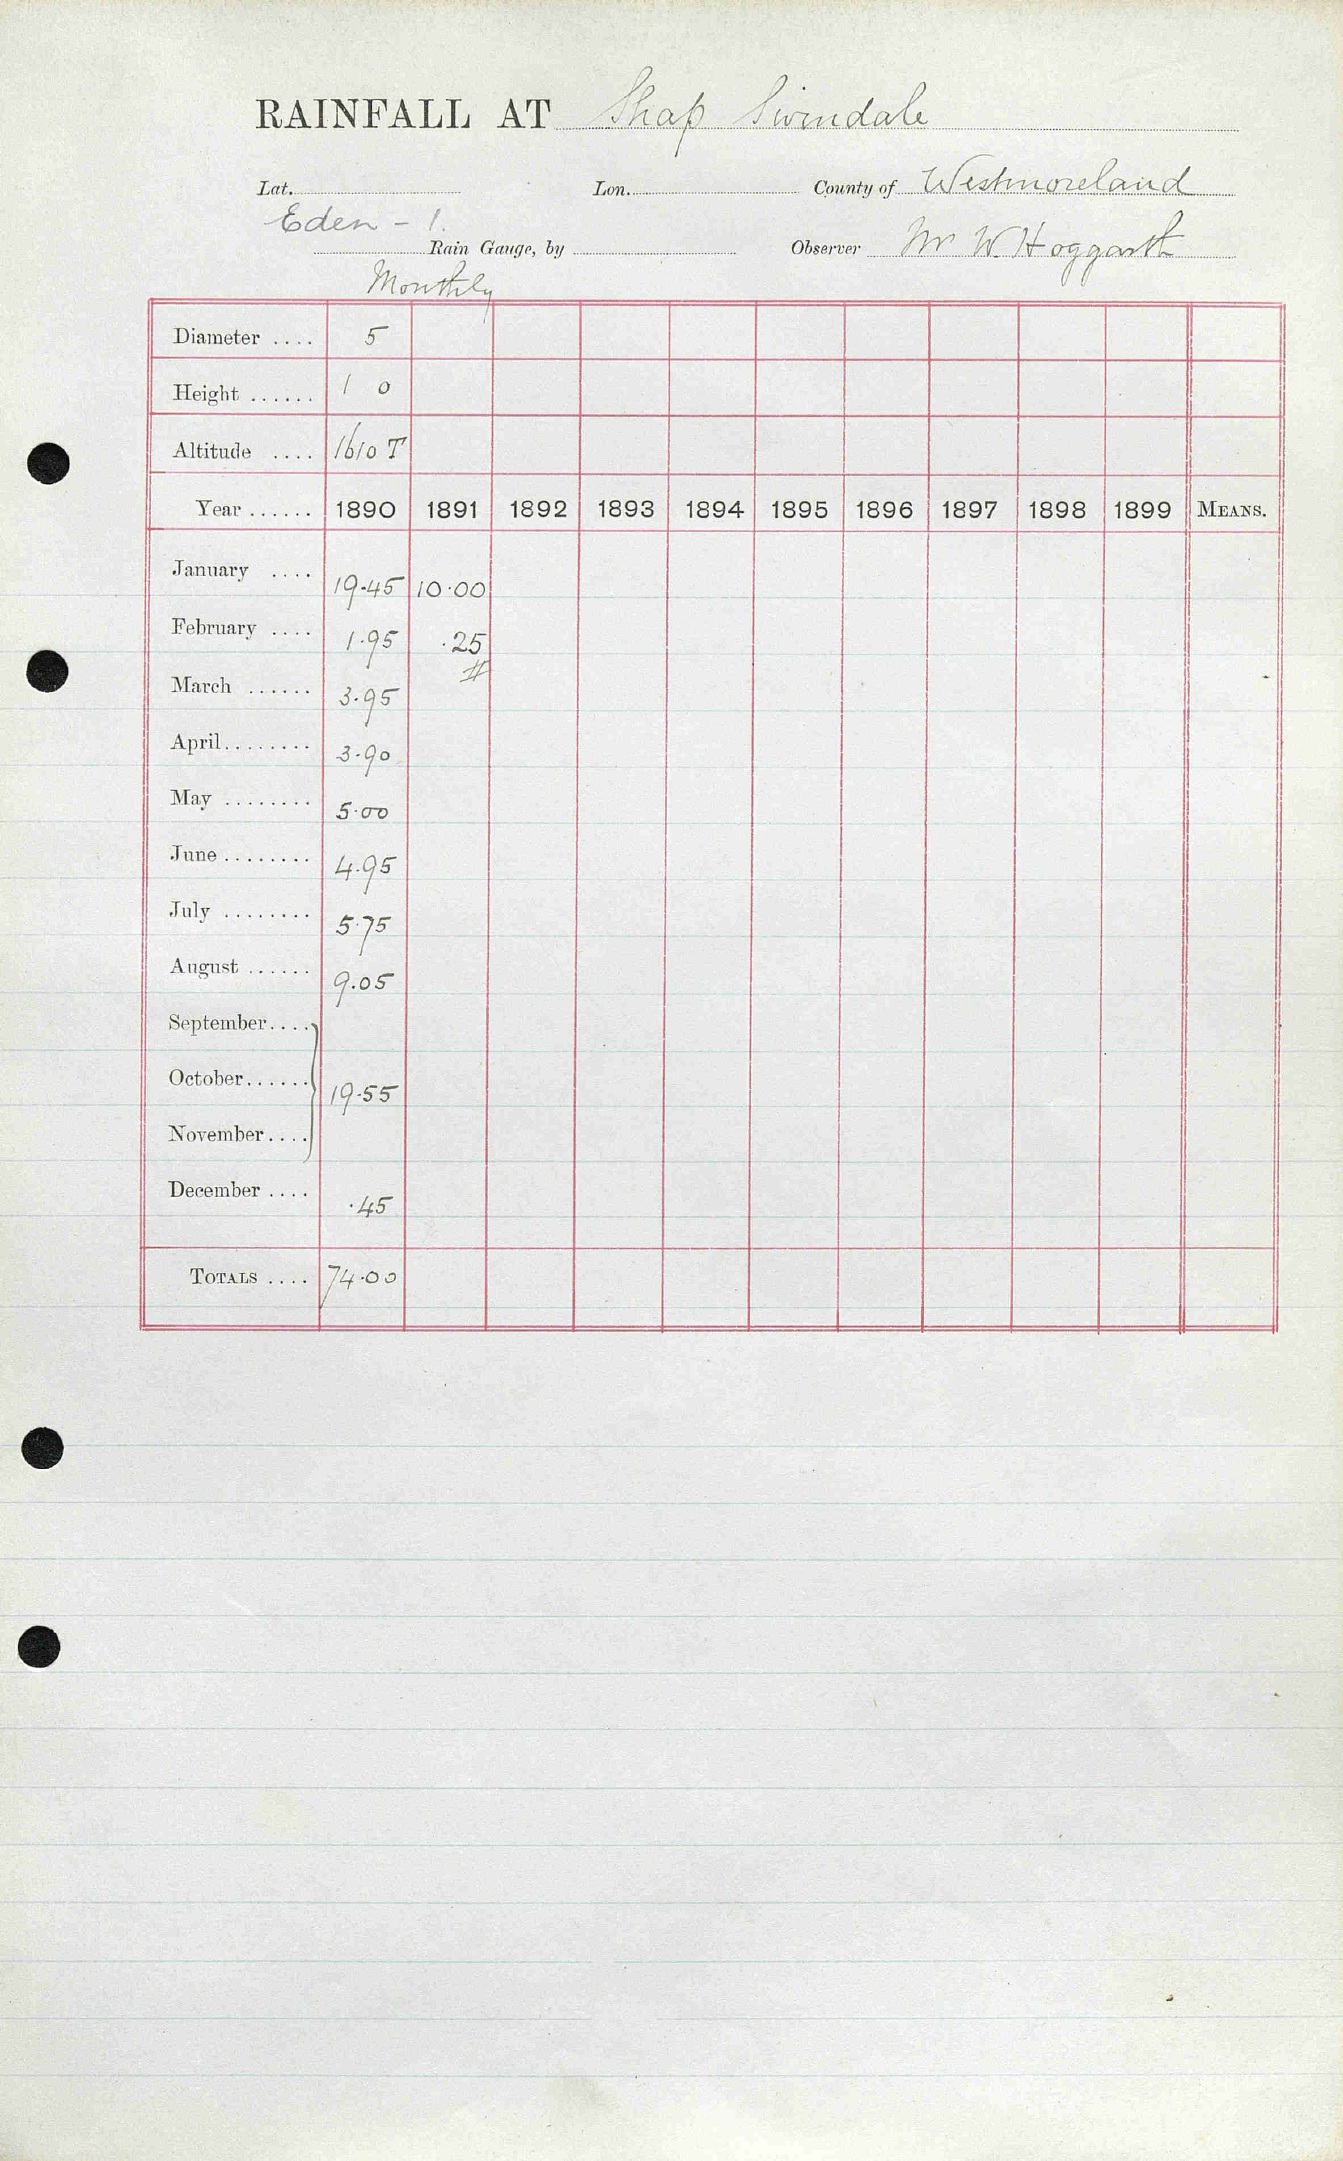 RAINFALL AT Shap Swindale
Lat. Lon. County of Westmoreland
Eden - 1.
Rain Gauge, by Observer Mr W Hoggarth
Monthly
Diameter .... 5
Height ...... 1 0
Altitude .... 1610 T
Year ...... 1890 1891 1892 1893 1894 1895 1896 1897 1898 1899 MEANS.
January .... 19.45 10.00
February .... 1.95 .25
March ...... 3.95 #
April........ 3.90
May ........ 5.00
June ........ 4.95
July ........ 5.75
August ...... 9.05
September....
October...... 19.55
November....
December .... .45
TOTALS .... 74.00